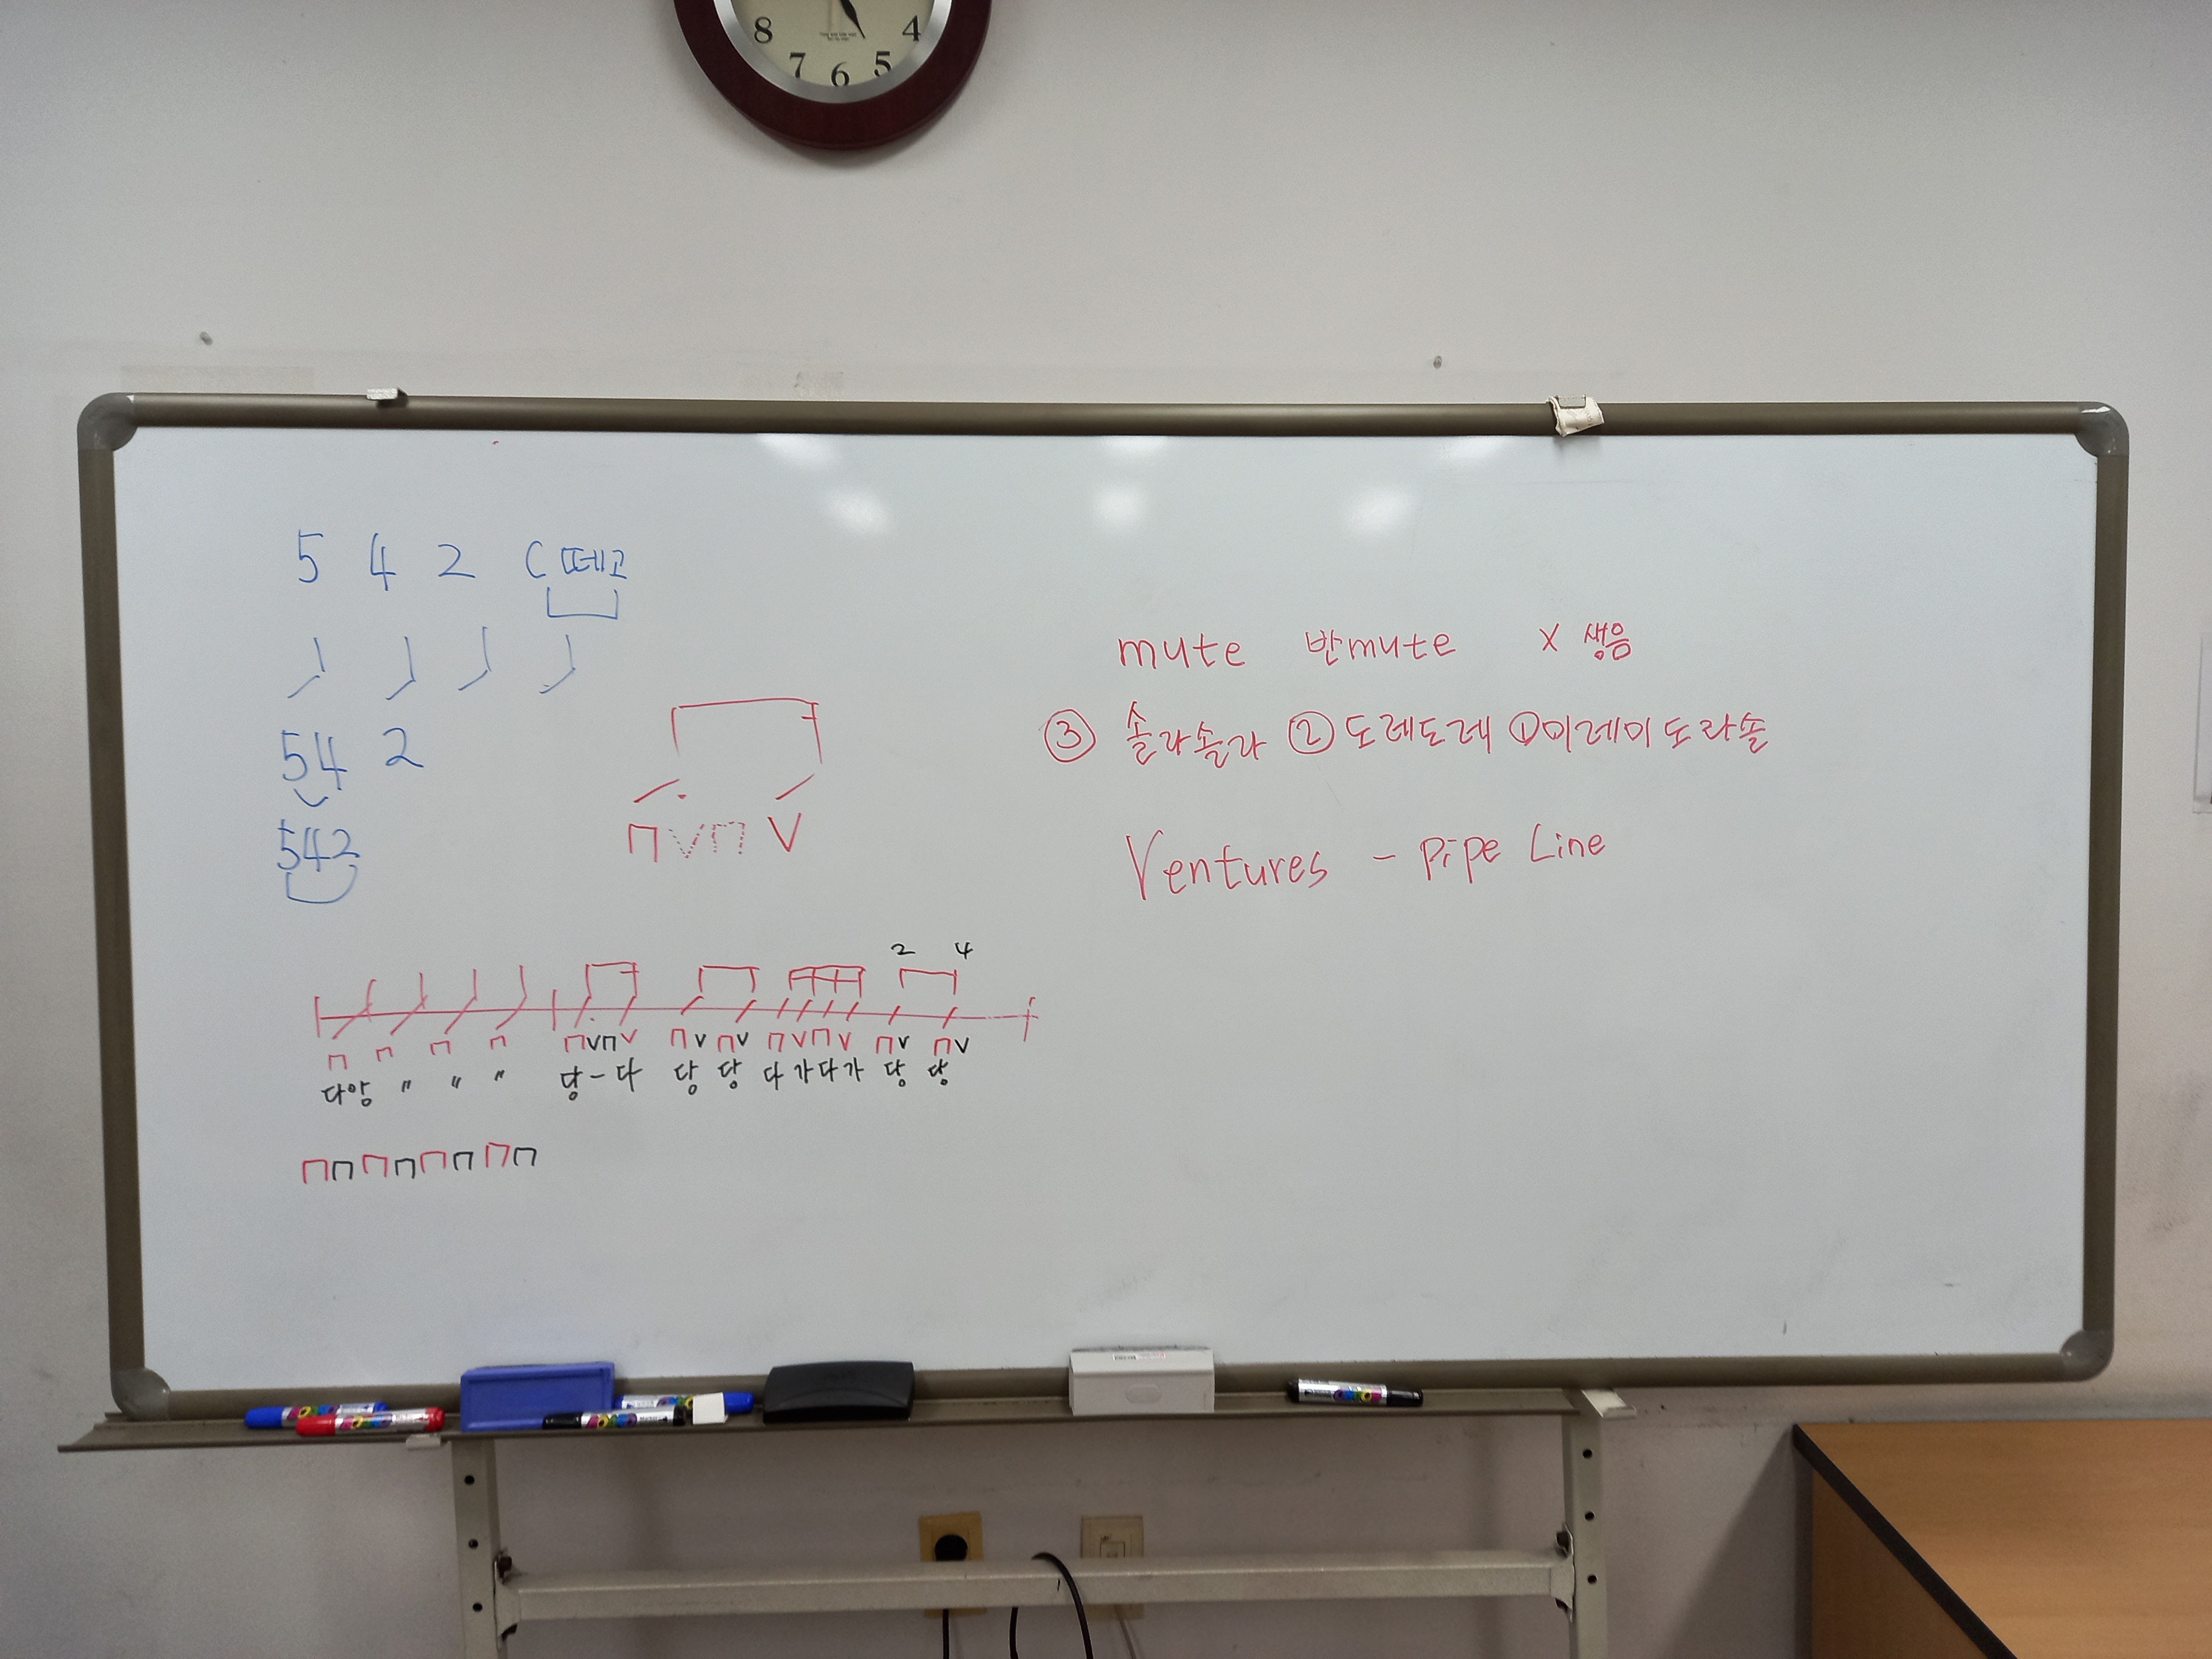 8 7 6 5 4
5 4 2 C 떼고
54 2
542
mute 반mute X 생음
③ 솔라솔라 ② 도레도레 ① 미레미도라솔
Ventures - pipe Line
П V П V
2 4
П П П П П V П V П V П V П V П V П V П V
다앙 〃 〃 〃 당 - 다 당 당 다 가 다 가 당 당
П П П П П П П П